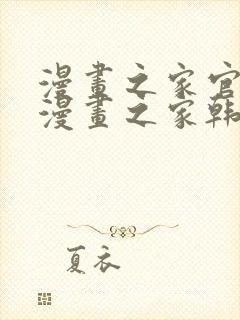 漫畫之家官
漫畫之家韩
夏衣